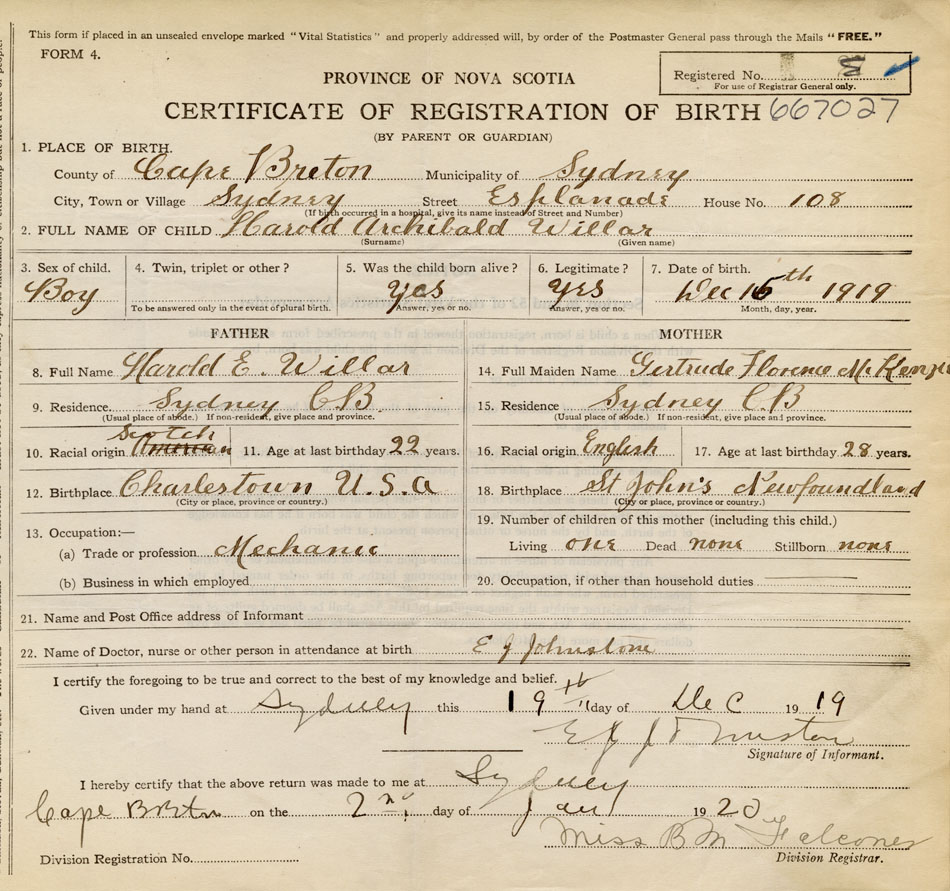 This form if placed in an unsealed envelope marked "Vital Statistics" and properly addressed will, by order of the Postmaster General pass through the Mails "FREE."
FORM 4.
PROVINCE OF NOVA SCOTIA
Registered No.
For use of Registrar General only.
CERTIFICATE OF REGISTRATION OF BIRTH 667027
(BY PARENT OR GUARDIAN)
1. PLACE OF BIRTH.
County of Cape Breton Municipality of Sydney
City, Town or Village Sydney Street Esplanade House No. 108
(If birth occurred in a hospital, give its name instead of Street and Number)
2. FULL NAME OF CHILD Harold Archibald Willar
(Surname) (Given name)
3. Sex of child. 4. Twin, triplet or other? 5. Was the child born alive? 6. Legitimate? 7. Date of birth.
Boy Yes Yes Dec 16th 1919
To be answered only in the event of plural birth. Answer, yes or no. Answer, yes or no. Month, day, year.
FATHER MOTHER
8. Full Name Harold E. Willar 14. Full Maiden Name Gertrude Florence McKenzie
9. Residence. Sydney C B 15. Residence Sydney C. B
(Usual place of abode.) If non-resident, give place and province. (Usual place of abode.) If non-resident, give place and province.
Scotch
10. Racial origin American 11. Age at last birthday 22 years. 16. Racial origin English 17. Age at last birthday 28 years.
12. Birthplace Charlestown U. S. a 18. Birthplace St John's Newfoundland
(City or place, province or country.) (City or place, province or country.)
13. Occupation:— 19. Number of children of this mother (including this child.)
(a) Trade or profession Mechanic Living one Dead none Stillborn none
(b) Business in which employed 20. Occupation, if other than household duties
21. Name and Post Office address of Informant
22. Name of Doctor, nurse or other person in attendance at birth E J Johnstone
I certify the foregoing to be true and correct to the best of my knowledge and belief.
Given under my hand at Sydney this 19th day of Dec 1919
E J Johnston
Signature of Informant.
I hereby certify that the above return was made to me at Sydney
Cape Breton on the 2nd day of Jan 1920
Miss B M Falconer
Division Registration No. Division Registrar.